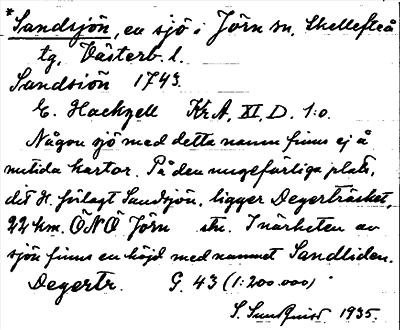 *Sandsjön, en sjö i Jörn sn. Skellefteå
tg, Västerb. l.
Sandsiön 1743.
E. Hackzell KrA, XI, D. 1:o.
Någon sjö med detta namn finns ej å
nutida kartor. På den ungefärliga plats,
dit H. förlagt Sandsjön, ligger Degerträsket,
22 km. ÖNÖ Jörn stn. I närheten av
sjön finns en höjd med namnet Sandliden.
Degertr. G. 43 (1:200.000)
S. 1935.